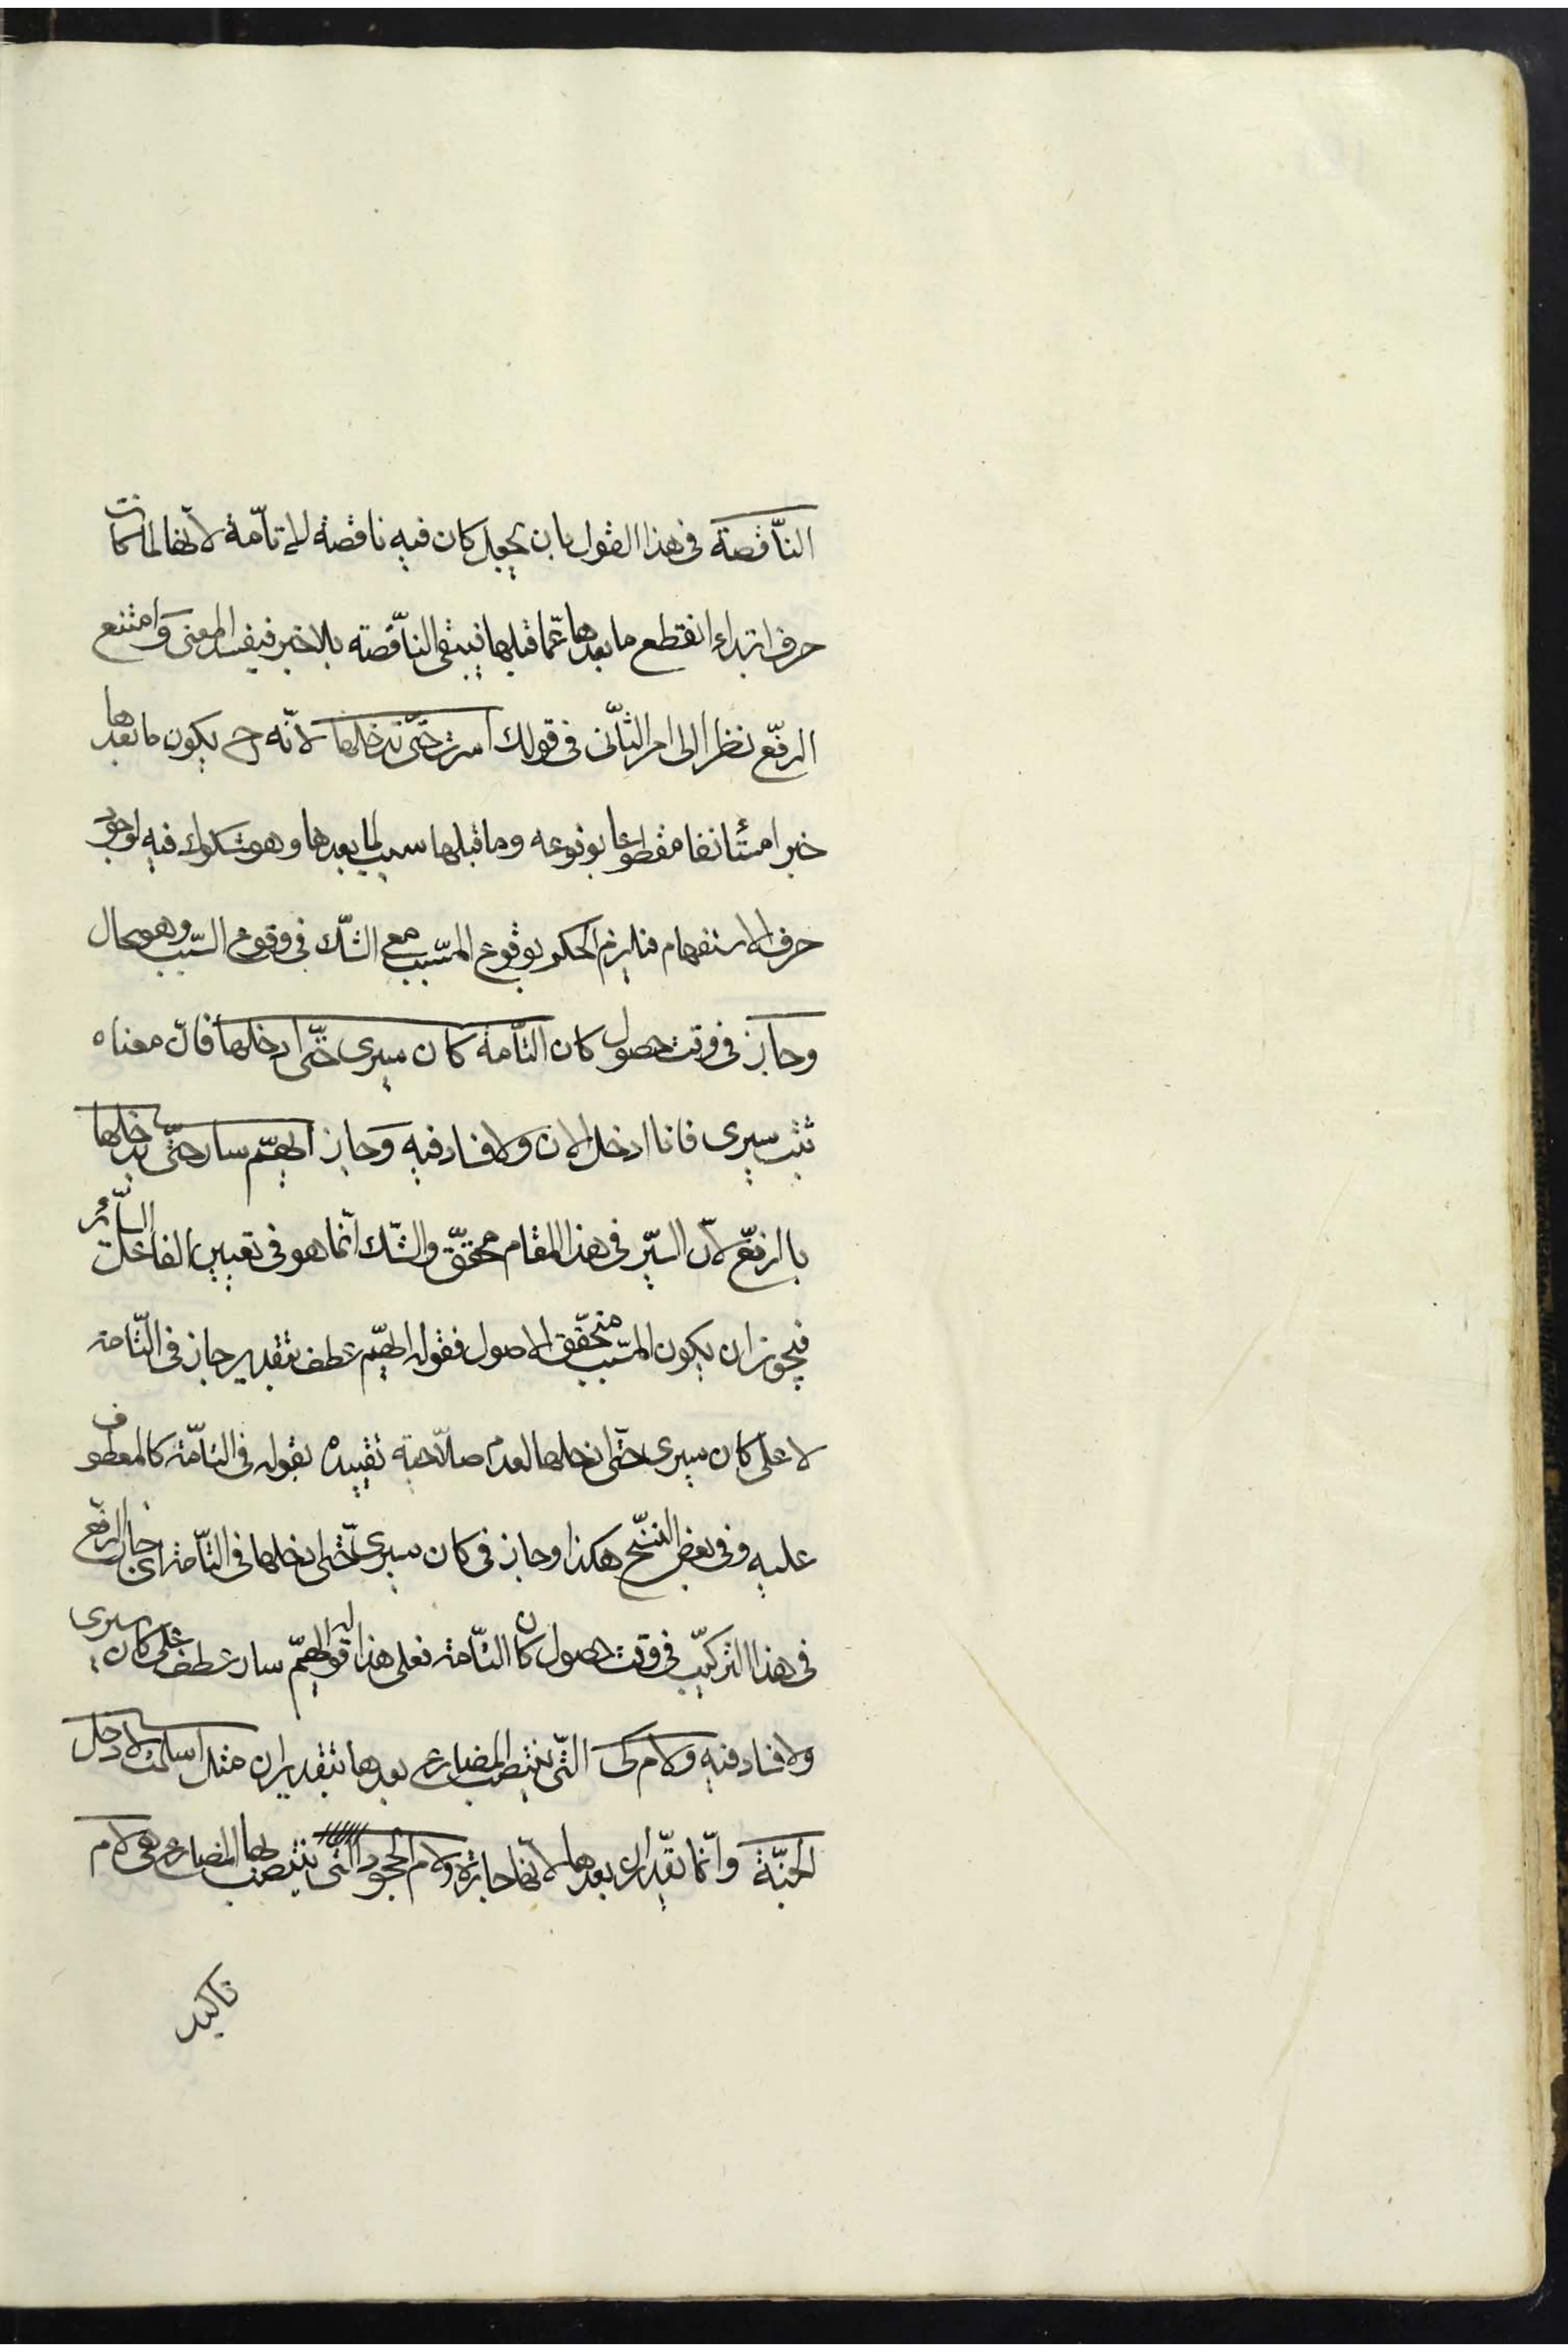 النّاقصة فى هذا القول بان يجعل كان فيه ناقصة لا تامّة لانّها لما كانت
حرف ابتداء انقطع ما بعدها عمّا قبلها فيبقى النّاقصة بلا خبر فيفسد المعنى وامتنع
الرفع نظرا الى امر الثانى فى قولك اسرت حتّى تدخلها لانّه ح يكون ما بعدها
خبرا مستأنفا مقطوعا بوقوعه وما قبلها سبب لما بعدها وهو مشكوك فيه لوجود
حرف الاستفهام فيلزم الحكم بوقوع المسّبب مع الشكّ فى وقوع السّبب وهو محال
وجاز فى وقت حصول كان التّامة كان سيرى حتّى ادخلها فانّ معناه
ثبت سيرى فانا ادخل الان ولا فساد فيه وجاز ايّهم سار حتّى يدخلها
باالرفع لانّ السّير فى هذا المقام محقّق والشّك انّما هو فى تعيين الفاعل السّائر
فيجوز ان يكون المسّبب متحقّق الاصول فقوله ايّهم عطف بتقدير جاز فى التّامة
لا على كان سيرى حتّى ادخلها لعدم صلاحية تقييده بقوله فى التّامة كالمعطوف
عليه وفى بعض النسّخ هكذا وجاز فى كان سيرى حتّى ادخلها فى التّامة اى جاز الرفع
فى هذا التركيب فى وقت حصول كان التّامة فعلى هذا قوله ايّهم سار عطف على كان سيرى
ولا فساد فيه ولام كى التّى ينتصب المضارع بعدها بتقدير ان مثل اسلمت لادخل
الجنّة وانّما تقدّر ان بعدها لانّها جارّة ولام الجحود التى ينتصب بها المضارع هى لام
تاكيد